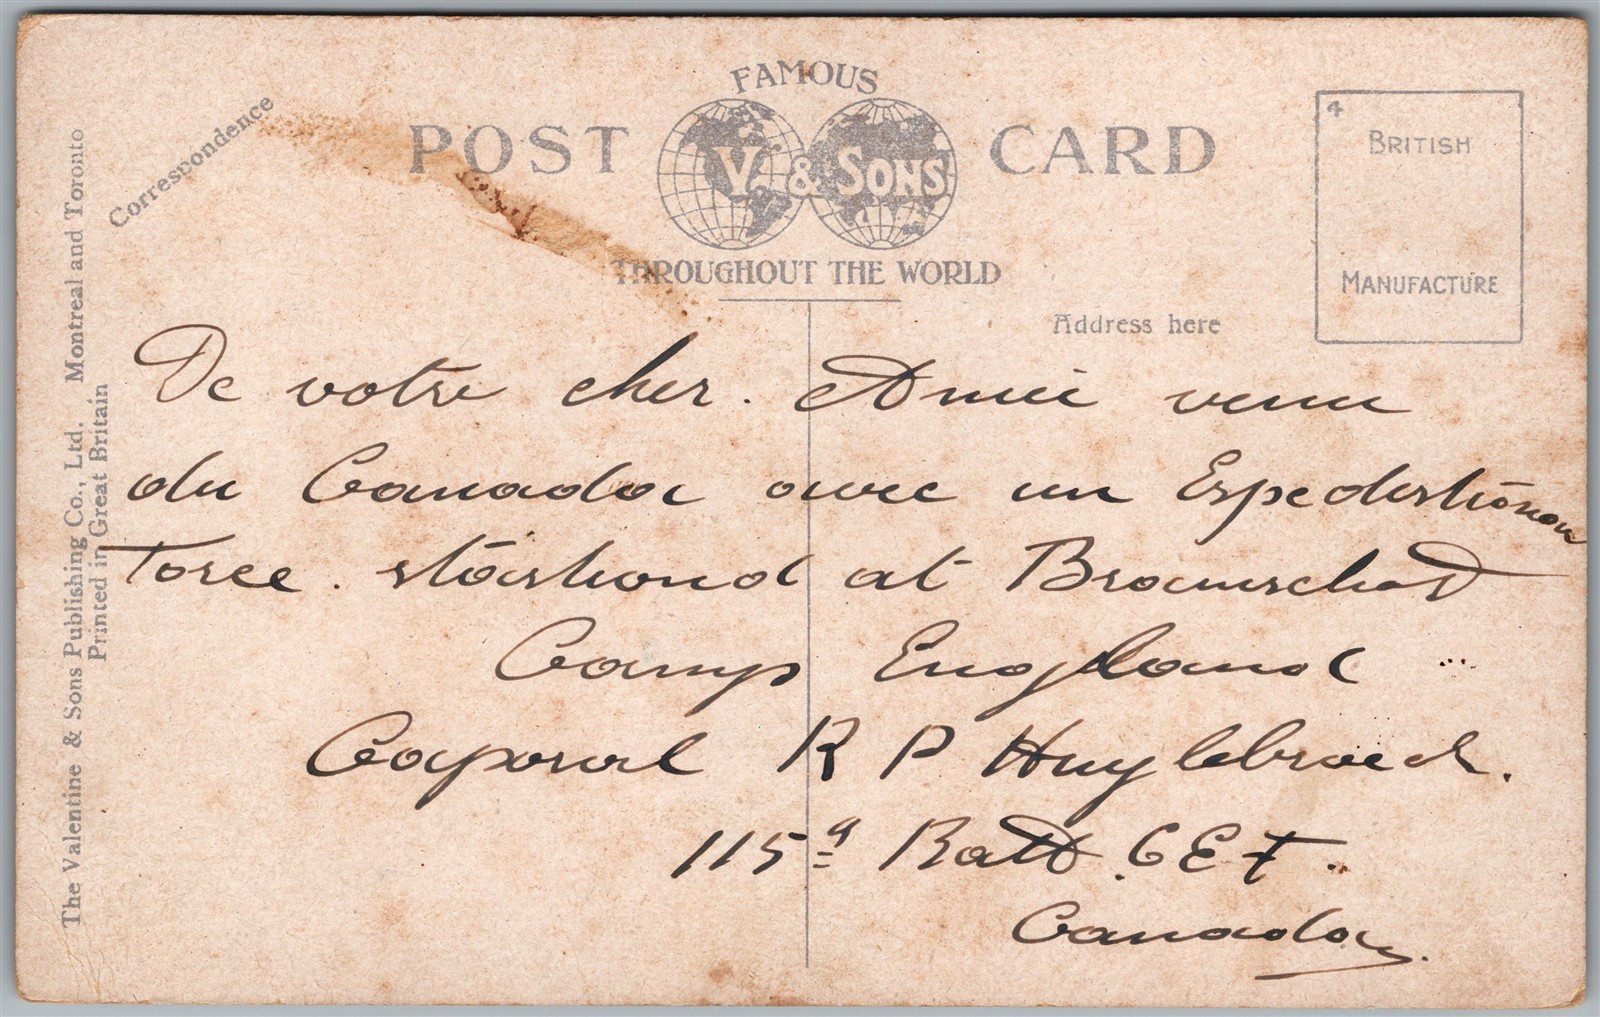 FAMOUS
POST V. & SONS CARD
THROUGHOUT THE WORLD
Correspondence
Address here
4
BRITISH
MANUFACTURE
The Valentine & Sons Publishing Co., Ltd. Montreal and Toronto
Printed in Great Britain
De votre cher. Amie venu
du Canada avec un Expedistionon
Force. stastioned at Bramschot
Camp England ...
Caporal R P Huylebroeck.
115 Batt. C E F.
Canada